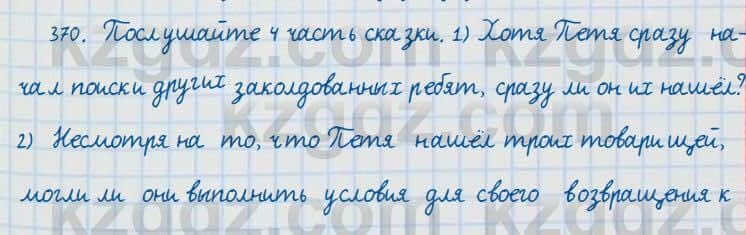 370. Послушайте 4 часть сказки. 1) Хотя Петя сразу на-
чал поиски других заколдованных ребят, сразу ли он их нашёл?
2) Несмотря на то, что Петя нашёл троих товарищей,
могли ли они выполнить условия для своего возвращения к